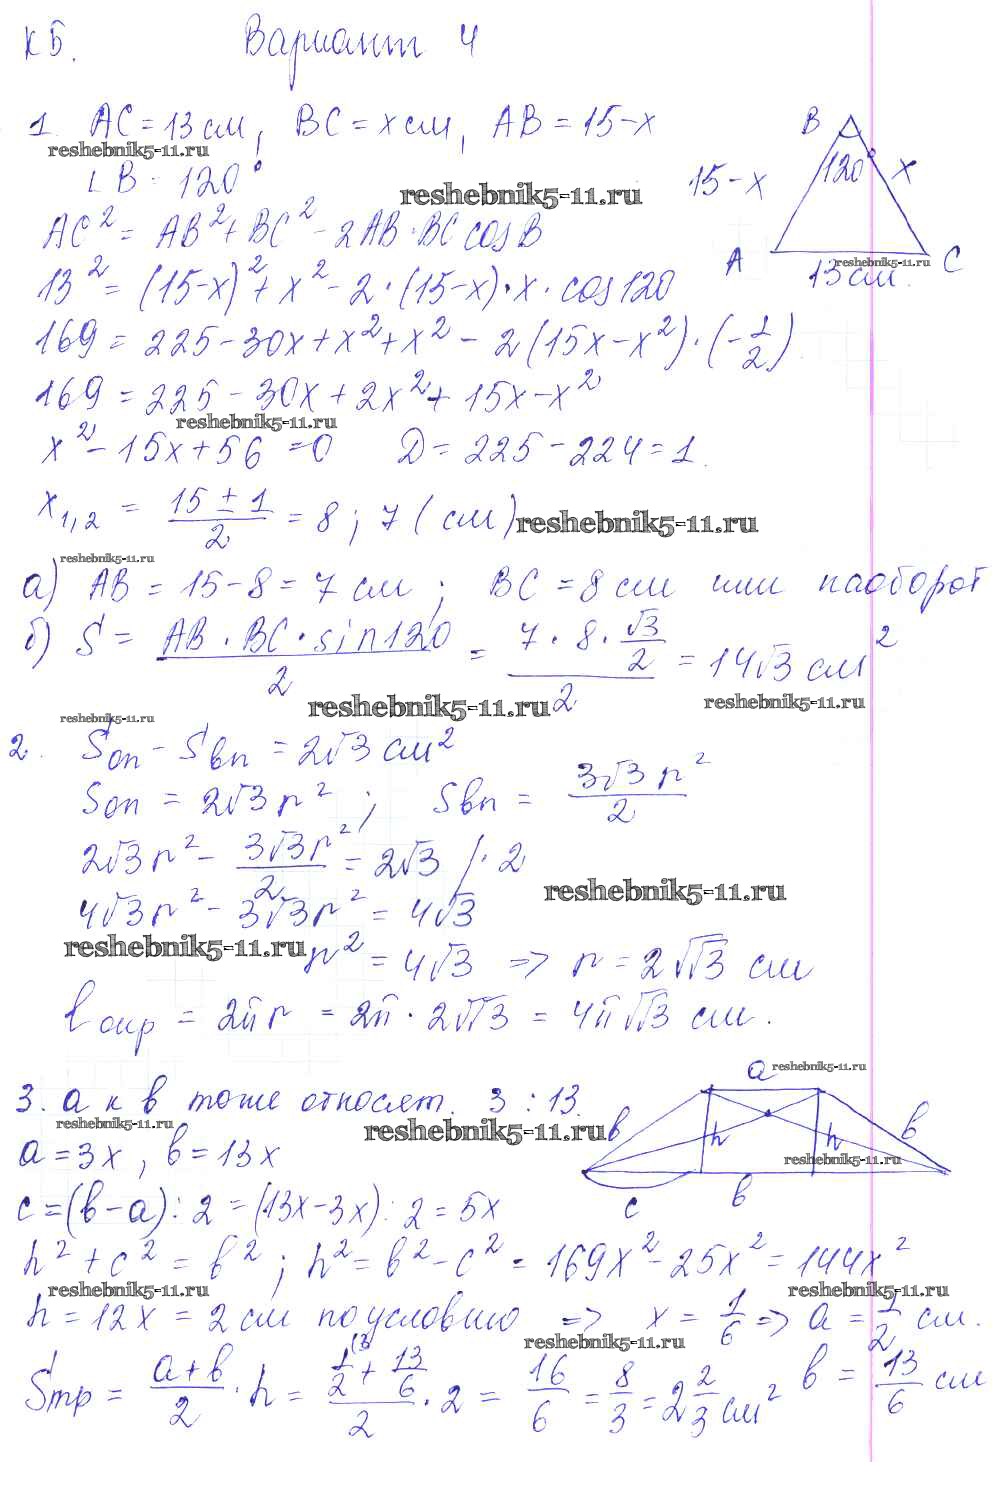 К 5. Вариант 4
1. AC = 13 см, BC = x см, AB = 15-x
reshebnik5-11.ru
∠B = 120°
reshebnik5-11.ru
B
120
15-x
x
A
13 см.
C
reshebnik5-11.ru
AC² = AB² + BC² - 2AB·BC cos B
13² = (15-x)² + x² - 2·(15-x)·x·cos 120
169 = 225 - 30x + x² + x² - 2(15x - x²)·(-1/2)
169 = 225 - 30x + 2x² + 15x - x²
reshebnik5-11.ru
x² - 15x + 56 = 0 D = 225 - 224 = 1.
x₁,₂ = (15 ± 1)/2 = 8; 7 (см)
reshebnik5-11.ru
reshebnik5-11.ru
а) AB = 15 - 8 = 7 см; BC = 8 см или наоборот
б) S = (AB·BC·sin 120)/2 = (7·8·√3/2)/2 = 14√3 см²
reshebnik5-11.ru
reshebnik5-11.ru
reshebnik5-11.ru
2. Sоп - Sвп = 2√3 см²
Sоп = 2√3 r²; Sвп = 3√3 r²/2
2√3 r² - 3√3 r²/2 = 2√3 /·2
reshebnik5-11.ru
4√3 r² - 3√3 r² = 4√3
reshebnik5-11.ru
r² = 4√3 => r = 2√√3 см
ℓ окр = 2π r = 2π·2√√3 = 4π√√3 см.
3. a к в тоже относят. 3 : 13.
reshebnik5-11.ru
reshebnik5-11.ru
a
reshebnik5-11.ru
в
h
h
в
reshebnik5-11.ru
c
в
a = 3x, в = 13x
c = (в - a) : 2 = (13x - 3x) : 2 = 5x
h² + c² = в²; h² = в² - c² = 169x² - 25x² = 144x²
reshebnik5-11.ru
reshebnik5-11.ru
h = 12x = 2 см по условию => x = 1/6 => a = 1/2 см.
reshebnik5-11.ru
Sтр = (a + в)/2 · h = (1/2⁽³ + 13/6)/2 · 2 = 16/6 = 8/3 = 2 2/3 см² в = 13/6 см